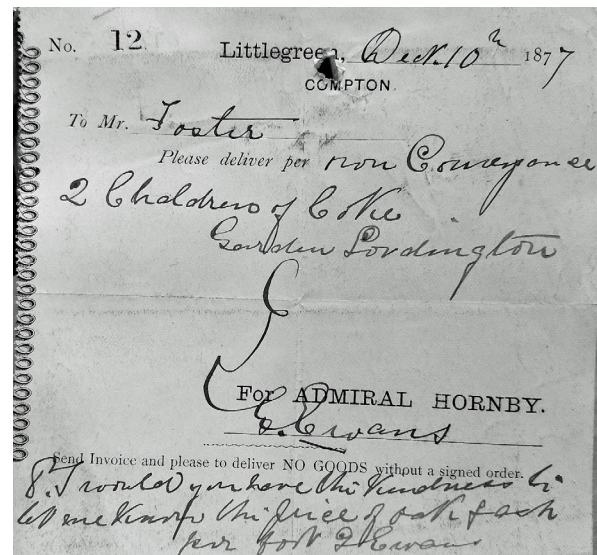 No. 12
Littlegreen, Oct. 10th 1877
COMPTON.
To Mr. Foster
Please deliver per own Conveyance
2 Chaldrons of Coke
Garden Lordington
For ADMIRAL HORNBY.
E. Evans
Send Invoice and please to deliver NO GOODS without a signed order.
would you have the kindness to
let me know the price of oak & ash
per foot Evans